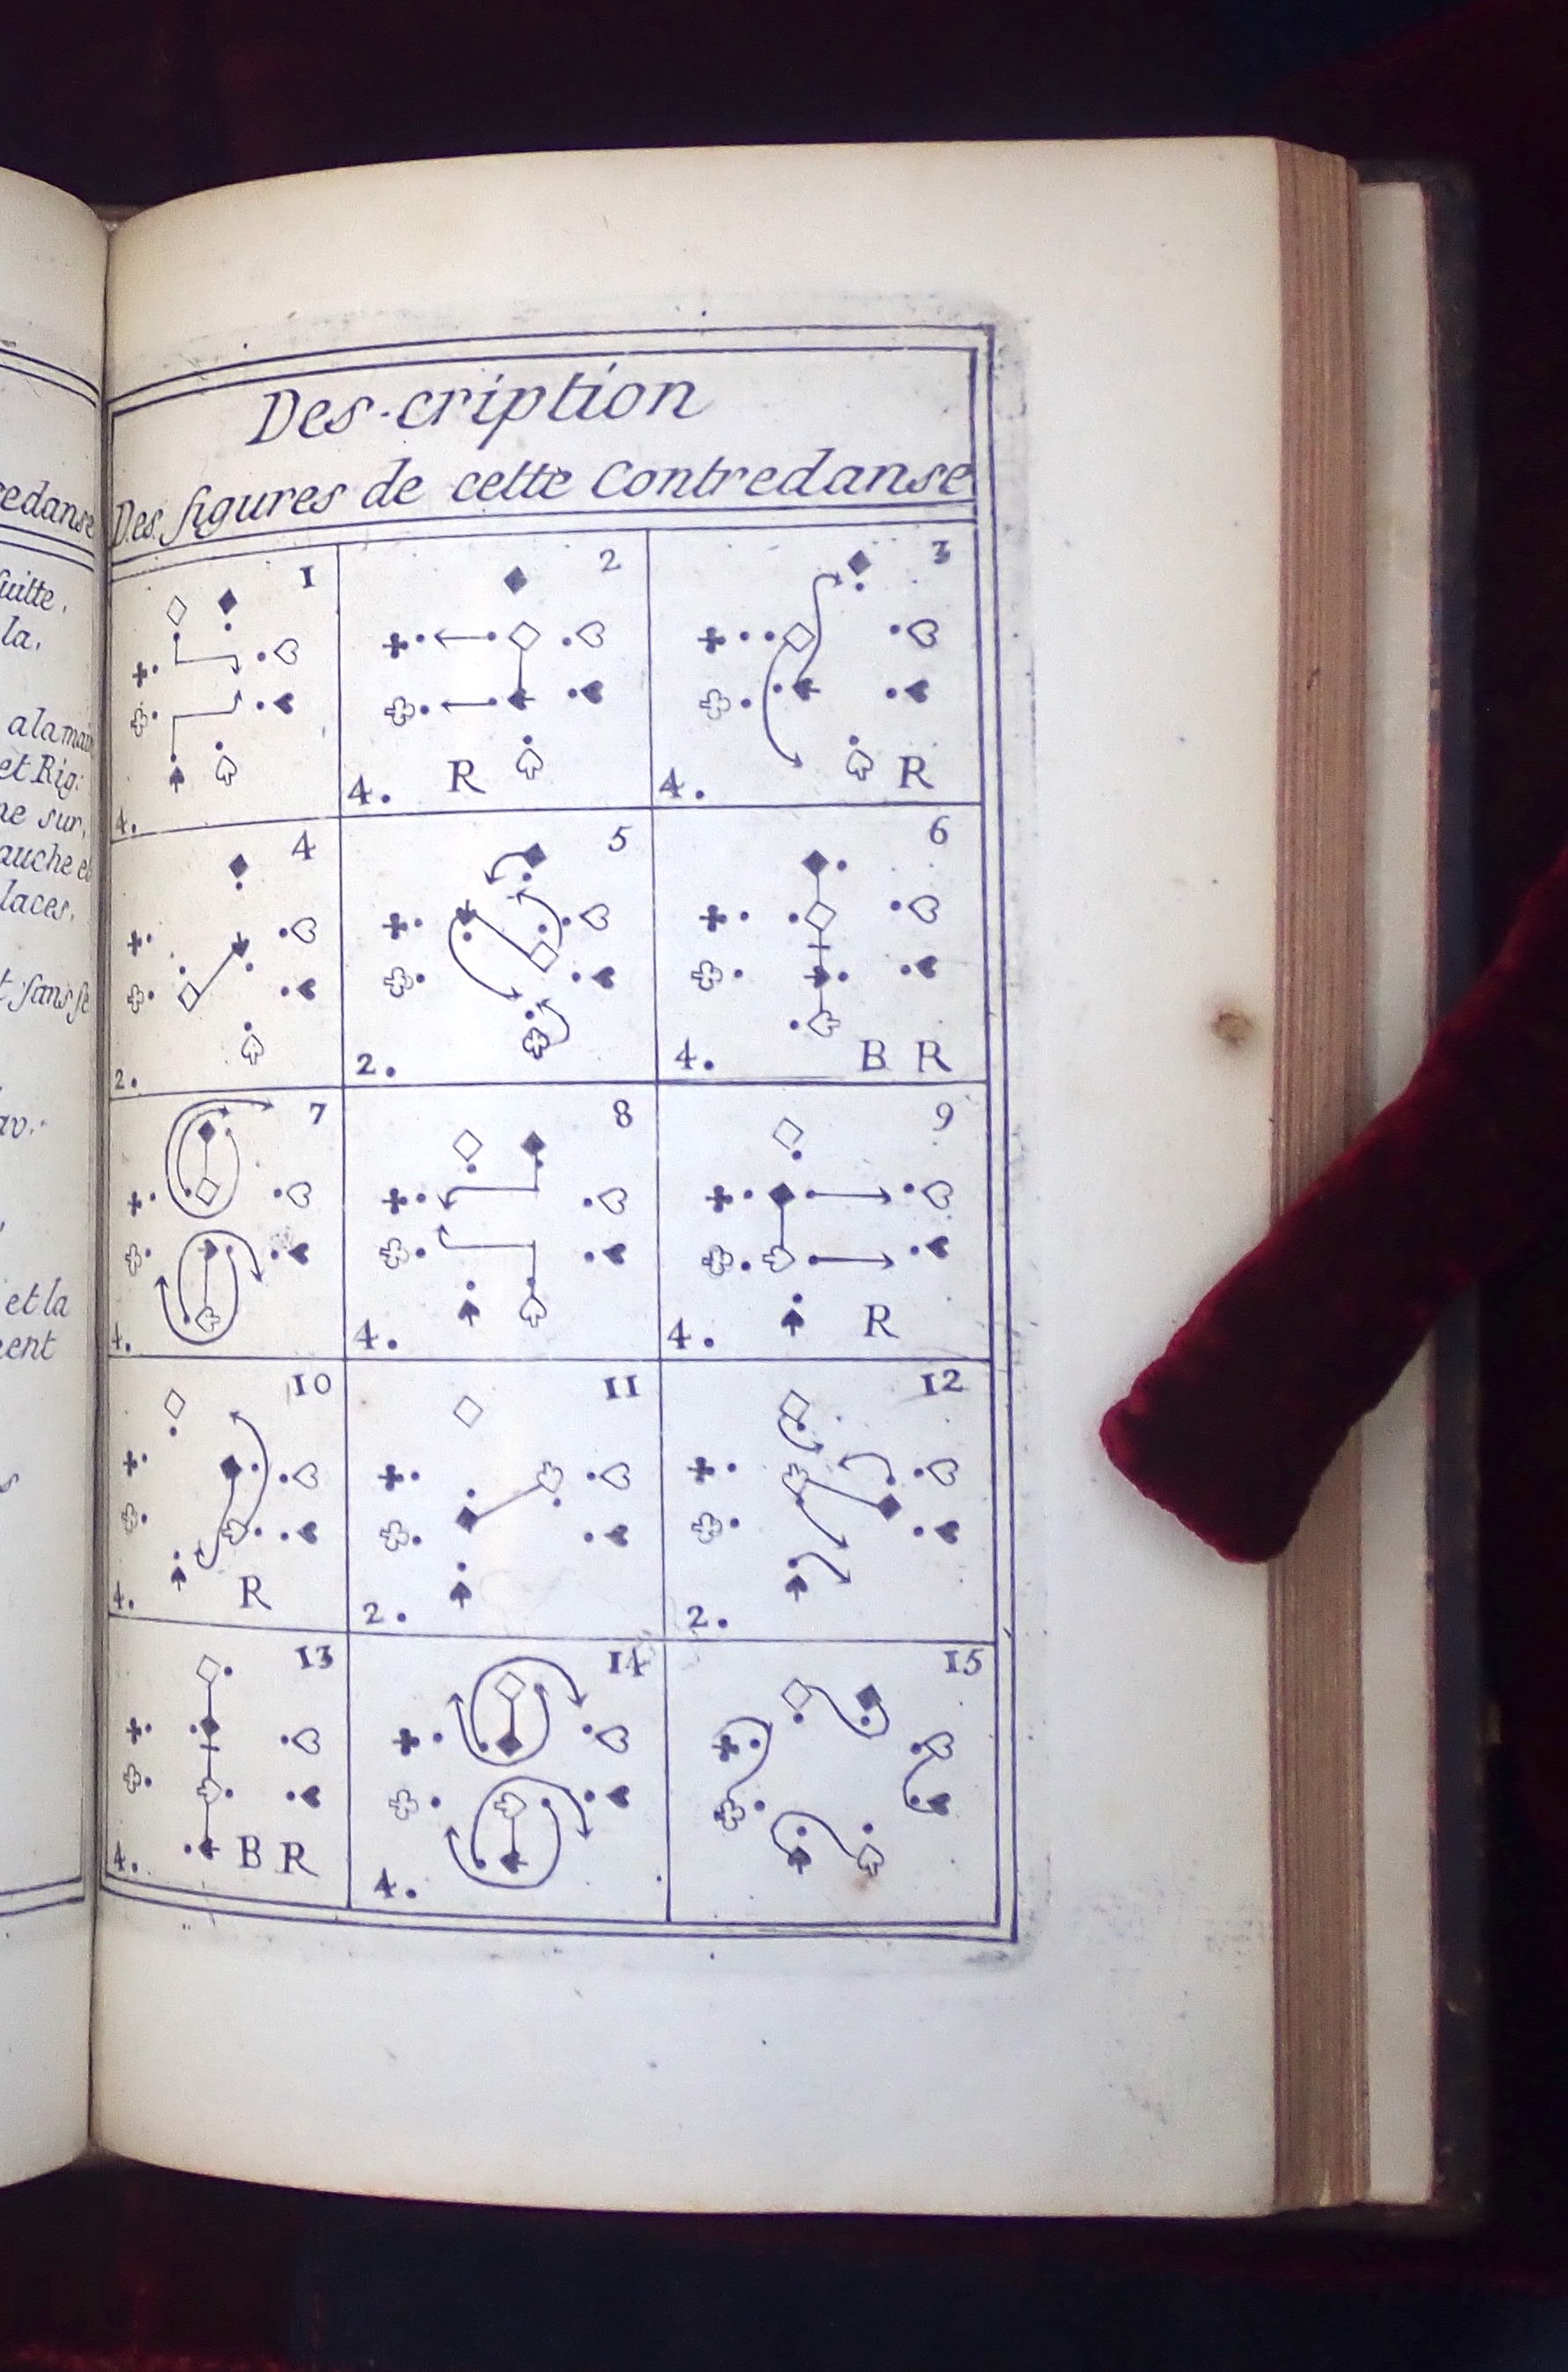 Des-cription
Des figures de cette Contredanse
1
4.
2
4. R
3
4. R
4
2.
5
2.
6
4. B R
7
4.
8
4.
9
4. R
10
4. R
11
2.
12
2.
13
4. B R
14
4.
15
redanse
suitte.
la.
a la main
et Rig:
ne sur,
auche et
laces.
t sans se
et la
ent